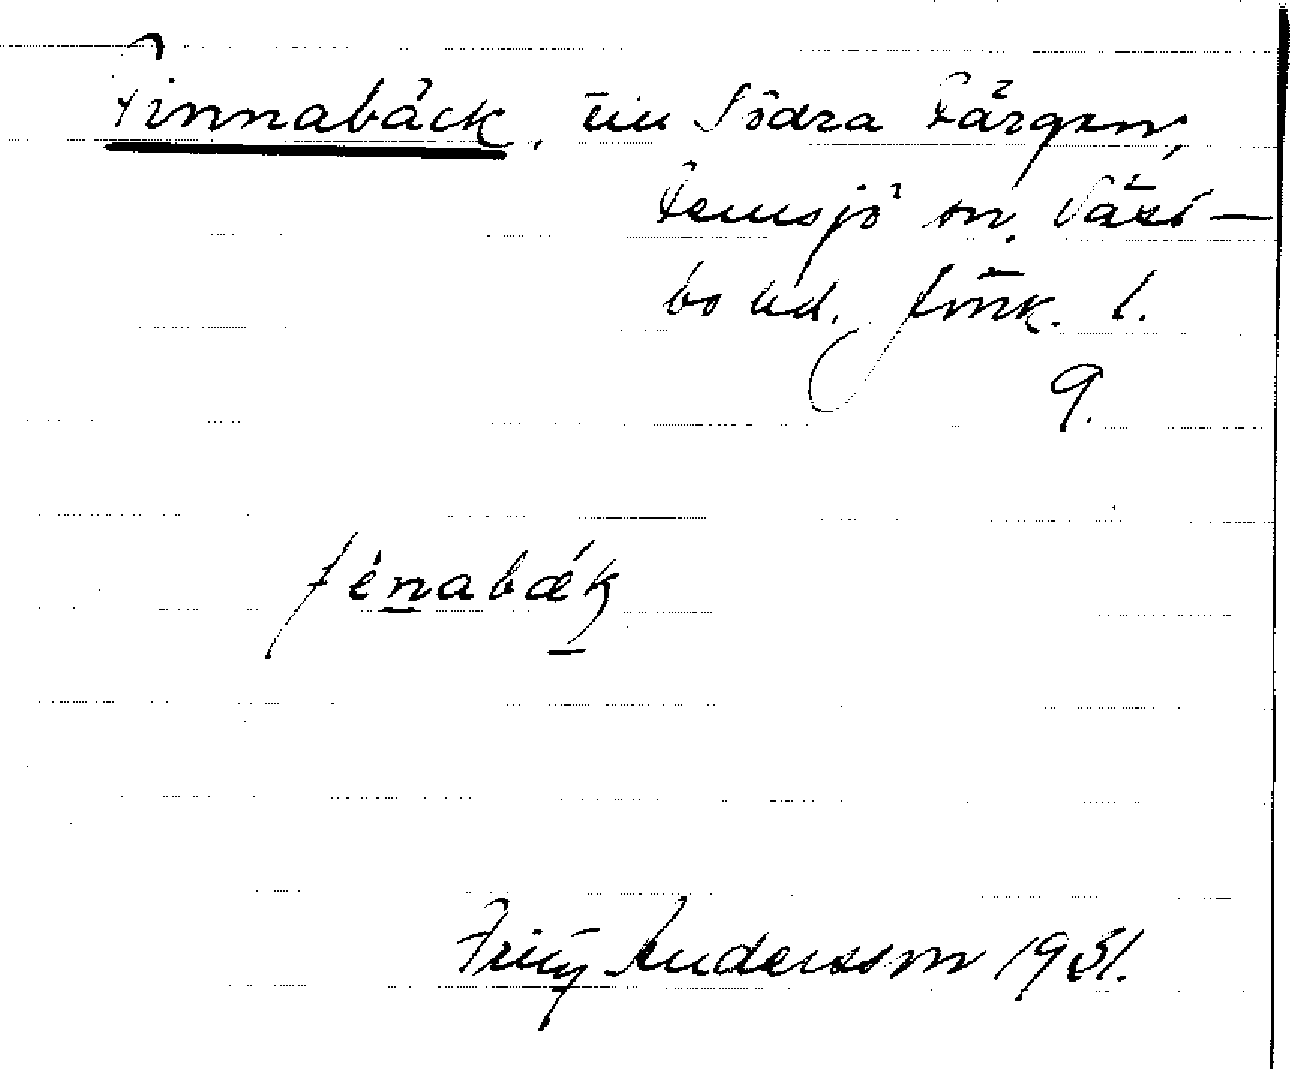 Finnabäck, till Södra Färgen,
Femsjö sn, Väst-
bo hd. Jönk. l.
9.
fénabæk
Fritz Andersson 1931.